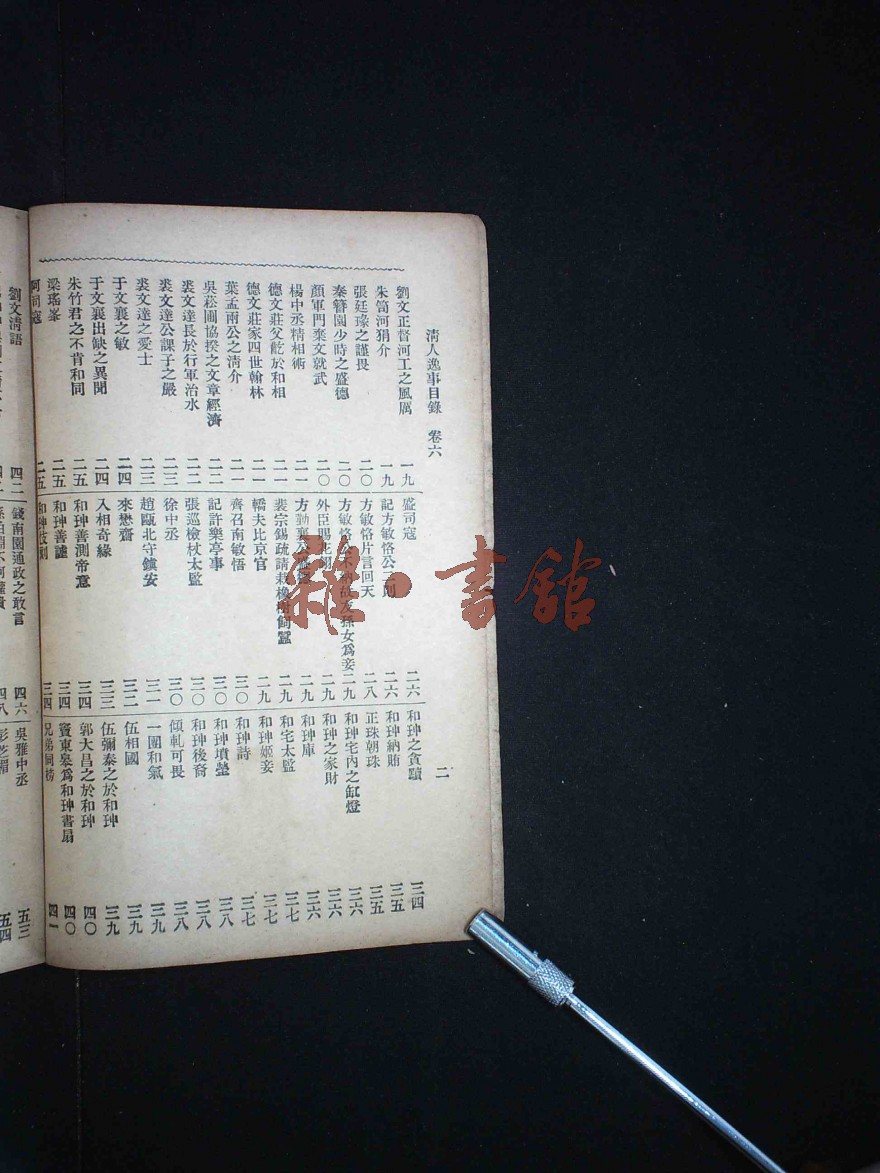 清人逸事目錄　卷六
二
劉文正督河工之風厲　一九
朱笥河狷介　一九
張廷瑑之謹畏　二〇
秦簪園少時之盛德　二〇
顏軍門棄文就武　二〇
楊中丞精相術　二一
德文莊父飥於和相　二一
德文莊家四世翰林　二一
葉孟兩公之清介　二一
吳菘圃協揆之文章經濟　二二
裘文達長於行軍治水　二二
裘文達公課子之嚴　二三
裘文達之愛士　二三
于文襄之敏　二四
于文襄出缺之異聞　二四
朱竹君之不肯和同　二五
梁瑤峯　二五
阿司寇　二五
盛司寇　二六
記方敏恪公二則　二六
方敏恪片言回天　二八
方敏恪不納故友孫女爲妾　二九
外臣賜花翎　二九
方勤襄　二九
裴宗錫疏請栽橡樹飼蠶　二九
轎夫比京官　二九
齊召南敏悟　三〇
記許樂亭事　三〇
張巡檢杖太監　三〇
徐中丞　三〇
趙甌北守鎭安　三一
來懋齋　三二
入相奇緣　三三
和珅善測帝意　三四
和珅善謔　三四
和珅軼則　三四
和珅之貪黷　三四
和珅納賄　三五
正珠朝珠　三五
和珅宅內之缸燈　三六
和珅之家財　三六
和珅庫　三六
和宅太監　三七
和珅姬妾　三七
和珅詩　三七
和珅墳塋　三八
和珅後裔　三八
傾軋可畏　三八
一團和氣　三九
伍相國　三九
伍彌泰之於和珅　三九
郭大昌之於和珅　四〇
竇東皋爲和珅書扇　四〇
兄弟同榜　四一
劉文清語　四二
錢南園通政之敢言　四六
吳雅中丞　五三
孫伯淵不阿權貴　四八
彭芝楣　五四
雜·書館